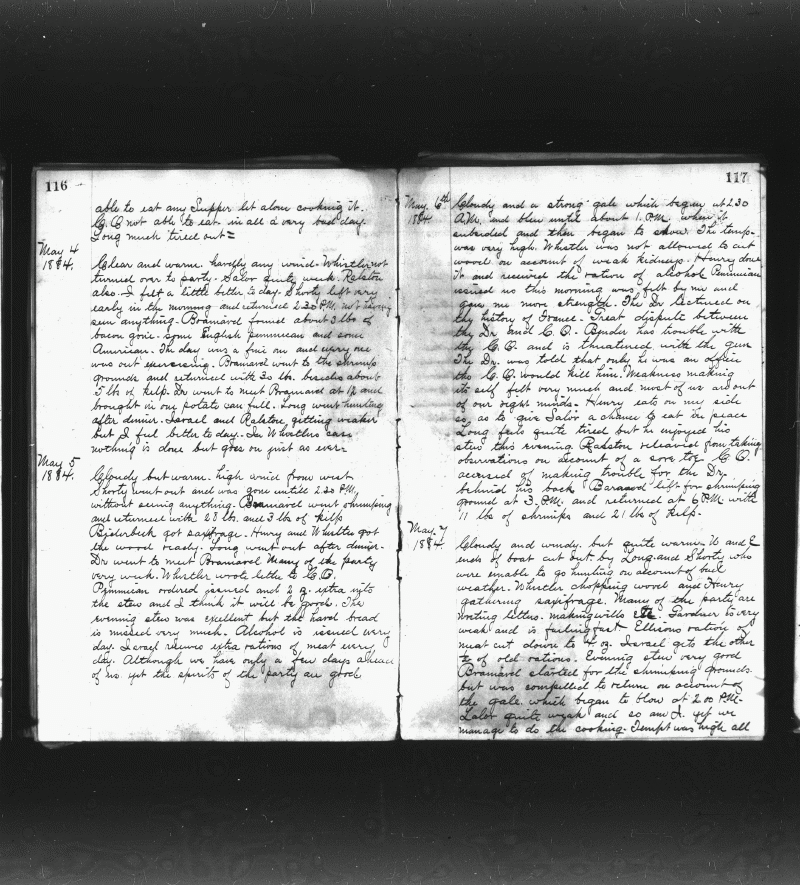 116
able to eat any Supper let alone cooking it.
C.C. not able to eat in all a very bad day.
Long much tired out =
May 4
1884.
Clear and warm. hardly any wind. Whistler not
turned over to party. Salor quite weak Ralston
also. I felt a little better to day. Shorty left very
early in the morning and returned 2.30 P.M. not having
seen anything. Bramarel found about 3 lbs of
bacon gone some English pemmican and some
American. The day was a fine one and every one
was out exercising. Bramarel went to the shrimp
grounds and returned with 30 lbs. besides about
5 lbs of kilp. Dr went to meet Bramarel at 12 and
brought in one potato can full. Long went hunting
after dinner. Israel and Ralston getting weaker
but I feel better to day. In Whistlers case
nothing is done but goes on just as ever
May 5
1884.
Cloudy but warm. high wind from west
Shorty went out and was gone untill 2.30 P.M,
without seeing anything. Bramarel went shrimping
and returned with 28 lbs. and 3 lbs of kilp
Bjiderbeck got saxifrage. Henry and Whistler got
the wood ready. Long went out after dinner.
Dr went to meet Bramarel Many of the party
very weak. Whistler wrote letter to C.O.
Pemmican ordered issued and 2 oz extra into
the stew and I think it will be good. The
evening stew was excellent but the hard bread
is missed very much. Alcohol is issued every
day. Israel receives extra rations of meat every
day. Although we have only a few days ahead
of us yet the spirits of the party are good
117
May. 6th
1884.
Cloudy and a strong gale which began at 2.30
A.M. and blew until about 1. P.M. when it
subsided and then began to snow. The temp.
was very high. Whistler was not allowed to cut
wood on account of weak kidneys. Henry done
it and received the ration of alcohol Pemmican
issued us this morning was felt by me and
gave me more strength. The Dr lectured on
the history of France. Great dispute between
the Dr and C.O. Bender has trouble with
the C.O. and is threatened with the gun
The Dr. was told that only he was an officer
the C.O. would kill him. Weakness making
its self felt very much and most of us are out
of our right minds. Henry eats on my side
so as to give Salor a chance to eat in peace
Long feels quite tired but he enjoyed his
stew this evening Ralston released from taking
observations on account of a sore toe. C.O.
accused of making trouble for the Dr.
behind his back left for shrimping
ground at 3. P.M. and returned at 6 P.M. with
11 lbs of shrimps and 21 lbs of kilp.
May. 7
1884.
Cloudy and windy. but quite warm.
ends of boat cut out. by Long and Shorty who
were enable to go hunting on account of bad
weather. Whistler chopping wood and Henry
gathering saxifrage. Many of the party are
writing letters. making wills Gardner is very
weak and is failing fast. Ellisons ration of
meat cut down to 4 oz. Israel gets the other
of old rations. Evening stew very good
Bramarel started for the shrimping grounds.
but was compelled to return on account of
the gale. which began to blow at 2.00 P.M.
Salor quite weak and so am I. yet we
manage to do the cooking. Tempt was high all